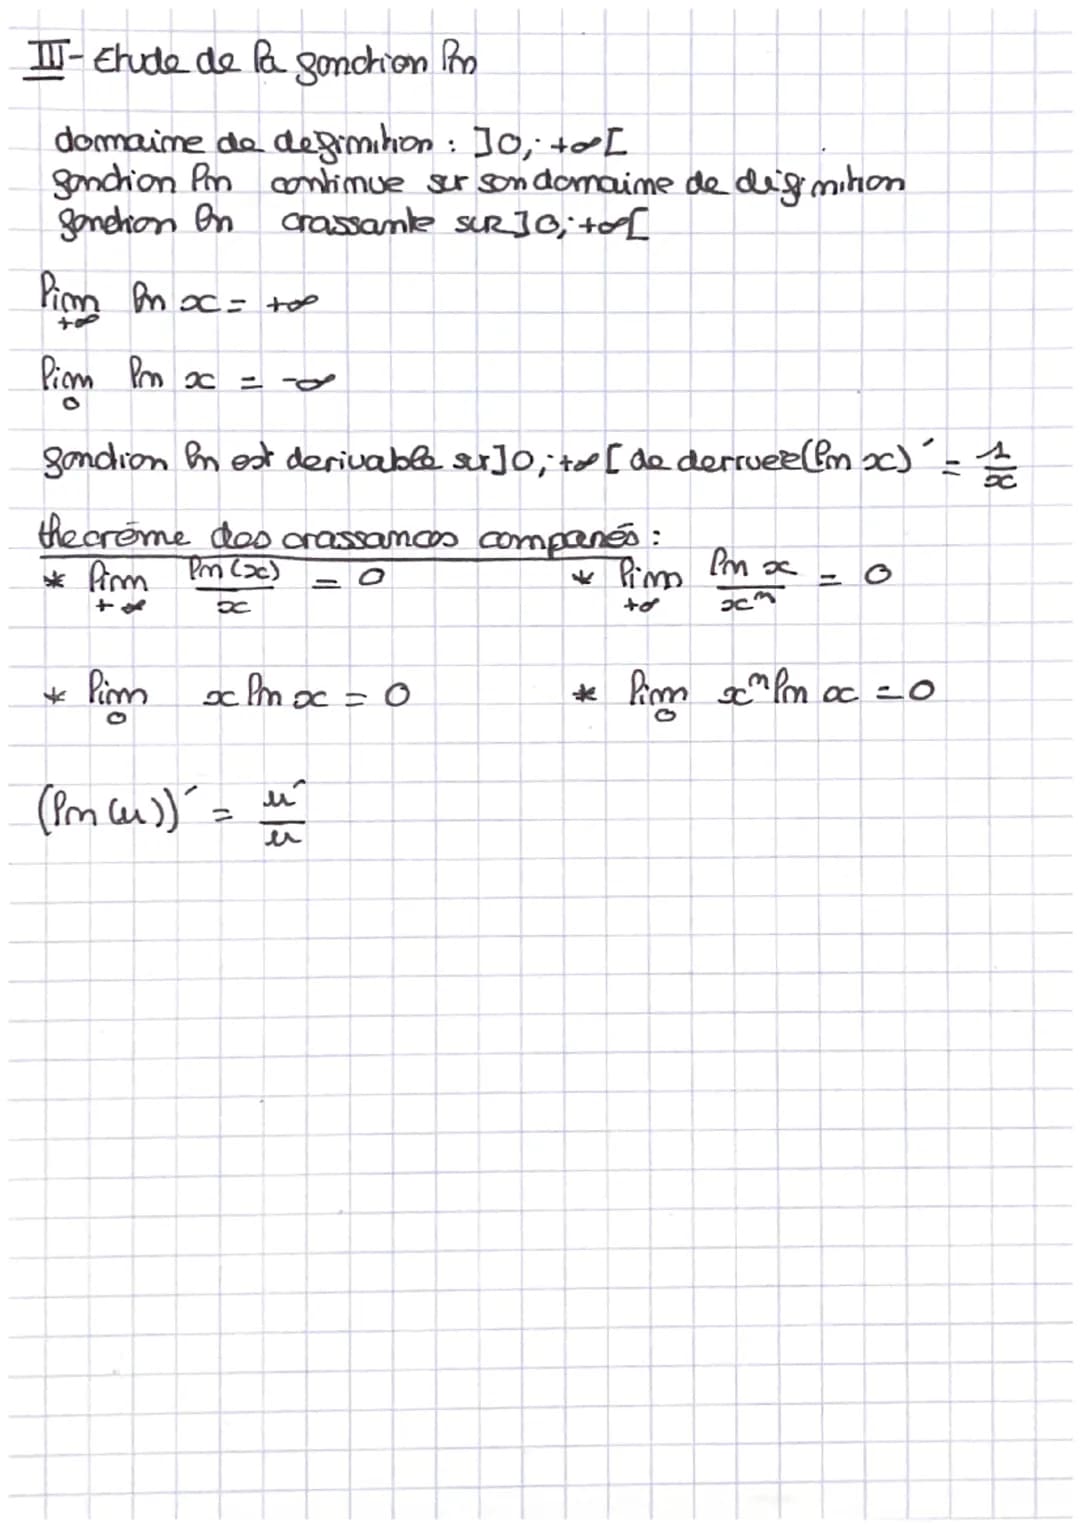 III - Etude de la fonction ln
domaine de definition : ]0; +∞[
fonction ln continue sur son domaine de définition
fonction ln croissante sur ]0; +∞[
lim ln x = +∞
+∞
lim ln x = -∞
0
fonction ln est derivable sur ]0; +∞[ de derivée (ln x)' = 1/x
theorème des croissances comparés :
* lim ln(x)/x = 0 * lim ln x/xⁿ = 0
+∞ +∞
* lim x ln x = 0 * lim xⁿ ln x = 0
0 0
(ln(u))' = u'/u